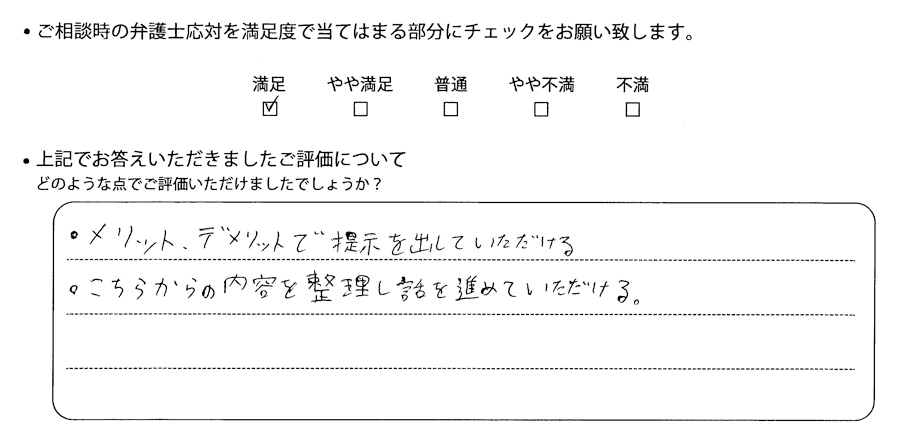 ・ご相談時の弁護士応対を満足度で当てはまる部分にチェックをお願い致します。
満足 やや満足 普通 やや不満 不満
☑ ☐ ☐ ☐ ☐
・上記でお答えいただきましたご評価について
どのような点でご評価いただけましたでしょうか？
・メリット、デメリットで提示を出していただける
・こちらからの内容を整理し話を進めていただける。